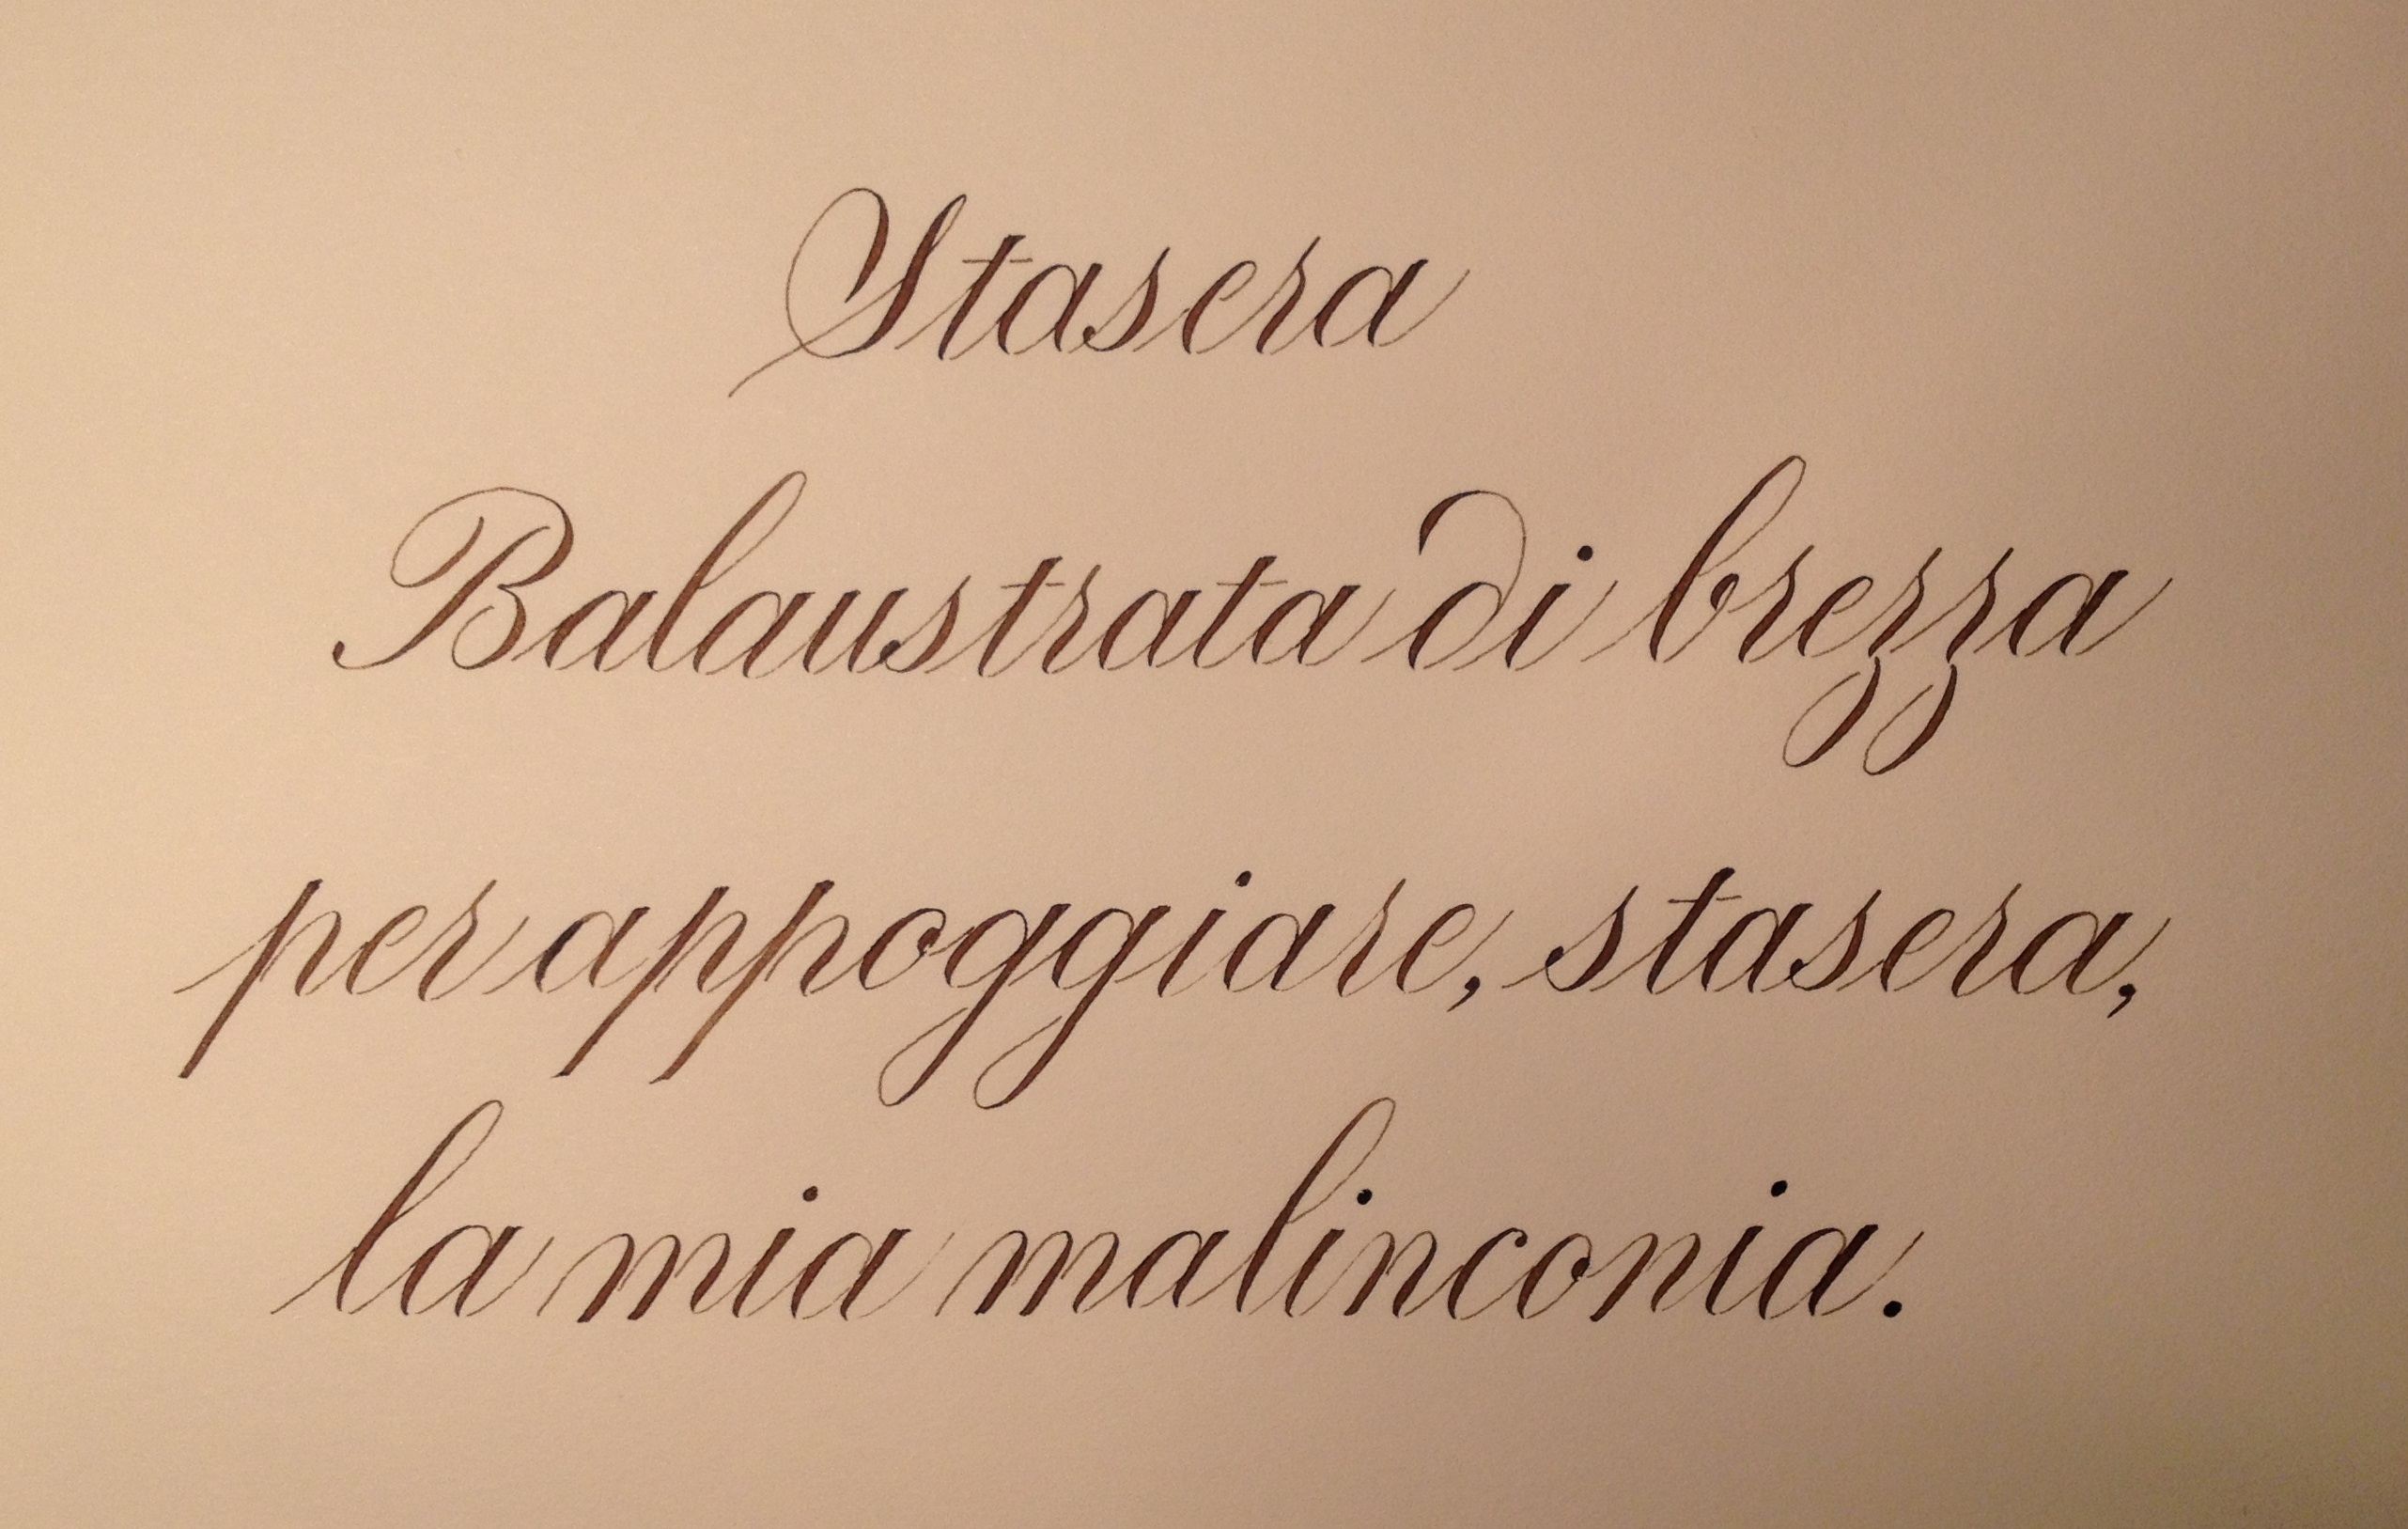 Stasera
Balaustrata di brezza
per appoggiare, stasera,
la mia malinconia.